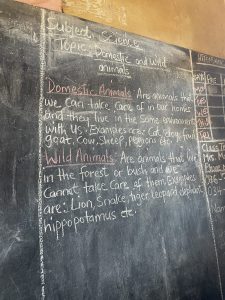 Subject: Science
Topic: Domestic and Wild
animals
Domestic Animals: Are animals that
we can take care of in our homes
and they live in the same environment
with us. Examples are: Cat, dog,
goat, Cow, Sheep, etc.
Wild Animals: Are animals that live
in the forest or bush and we
Cannot take Care of them. Examples
are: Lion, Snake, tiger, leopard, elephant,
hippopotamus etc.
Class T
Mrs. M